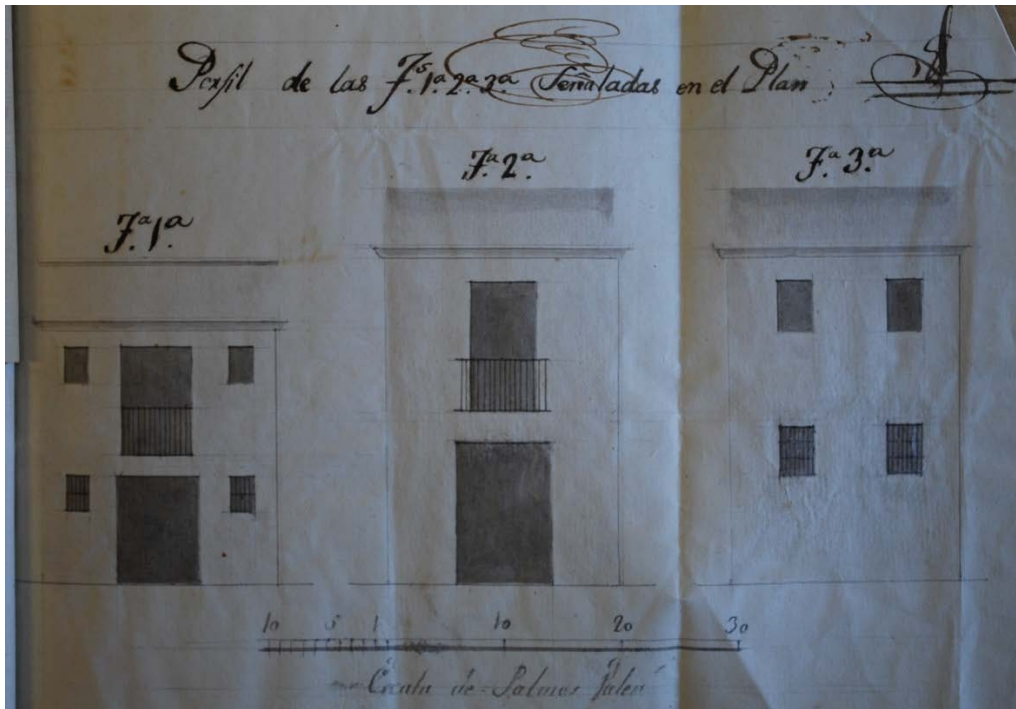 Perfil de las F.s 1.a 2.a 3.a Señaladas en el Plan
F.a 1.a
F.a 2.a
F.a 3.a
10 5 1 10 20 30
Escala de Palmos Valen.s